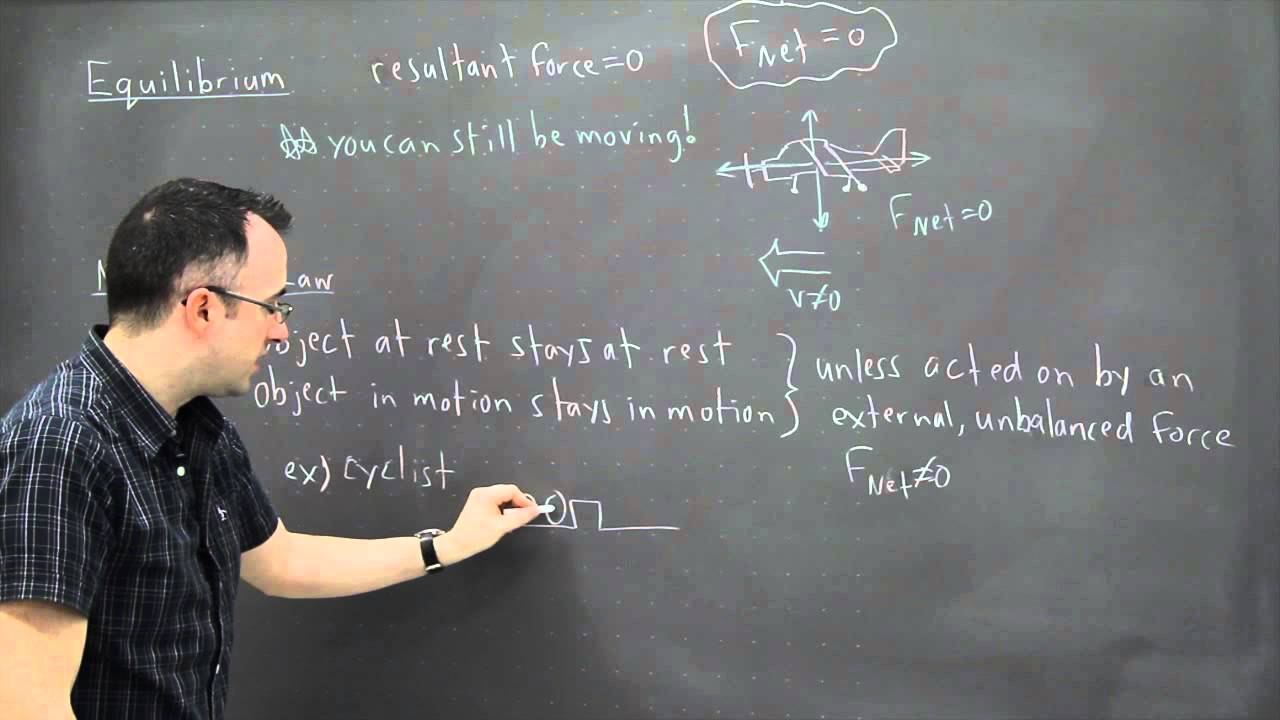 Equilibrium resultant force=0 F Net = 0
you can still be moving!
F Net = 0
v≠0
Law
object at rest stays at rest
object in motion stays in motion
unless acted on by an
external, unbalanced force
F Net ≠ 0
ex) cyclist